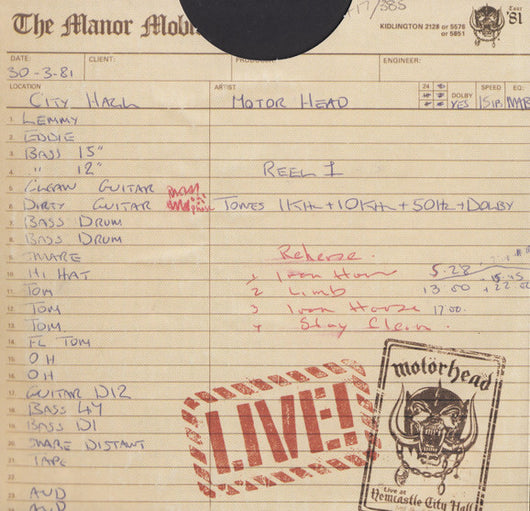 The Manor Mobi
17/385
KIDLINGTON 2128 or 5676
or 5851
Tour '81
DATE: CLIENT: PRODUCER ENGINEER:
30-3-81
LOCATION ARTIST 24 DOLBY SPEED EQ:
CITY HALL MOTOR HEAD YES 15 IPS NAB
1 LEMMY
2 EDDIE
3 BASS 15"
4 " 12" REEL 1
5 CLEAN GUITAR
6 DIRTY GUITAR TONES 1KHz + 10KHz + 50Hz + DOLBY
7 BASS DRUM
8 BASS DRUM
9 SNARE Reherse.
10 HI HAT 1 Iron Hors 5.28
11 TOM 2 Limb 13 00
12 TOM 3 Iron Horse 17 00.
13 TOM 4 Stay Clean.
14 FL TOM
15 OH
16 OH
17 GUITAR D12
18 BASS 47
19 BASS DI
20 SNARE DISTANT
21 TAPE
22
23 AUD
AUD
LIVE!
motörhead
Live at
Newcastle City Hall